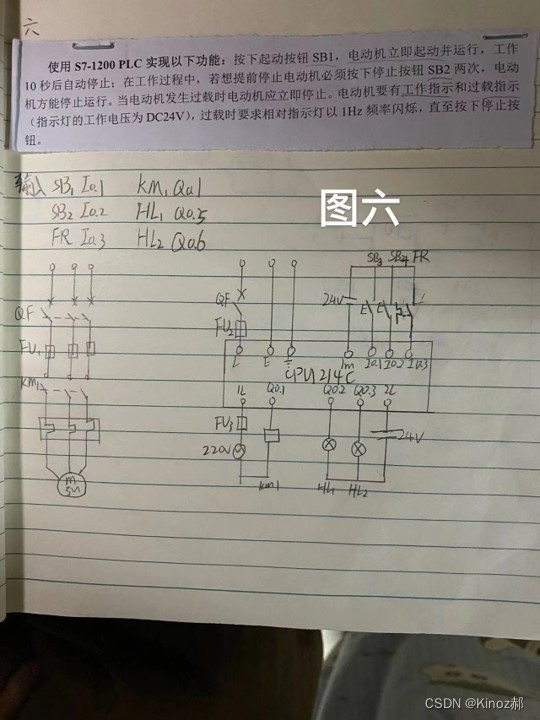 六
使用 S7-1200 PLC 实现以下功能：按下起动按钮 SB1，电动机立即起动并运行，工作
10 秒后自动停止；在工作过程中，若想提前停止电动机必须按下停止按钮 SB2 两次，电动
机方能停止运行。当电动机发生过载时电动机应立即停止。电动机要有工作指示和过载指示
（指示灯的工作电压为 DC24V），过载时要求相对指示灯以 1Hz 频率闪烁，直至按下停止按
钮。
输入 SB1 I0.1 KM1 Q0.1
SB2 I0.2 HL1 Q0.5
FR I0.3 HL2 Q0.6
图六
FR
QF
QF
24V
E
FU2
FU1
L
1m
I0.1
I0.2
I0.3
CPU 214C
KM1
1L
Q0.1
Q0.2
Q0.3
2L
FU3
220V
24V
M
KM1
HL1
HL2
CSDN @Kinoz郝